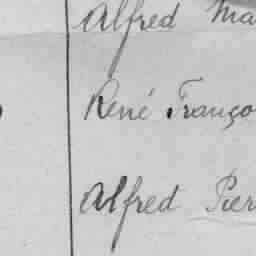 Alfred Ma
René Franço
Alfred Pier